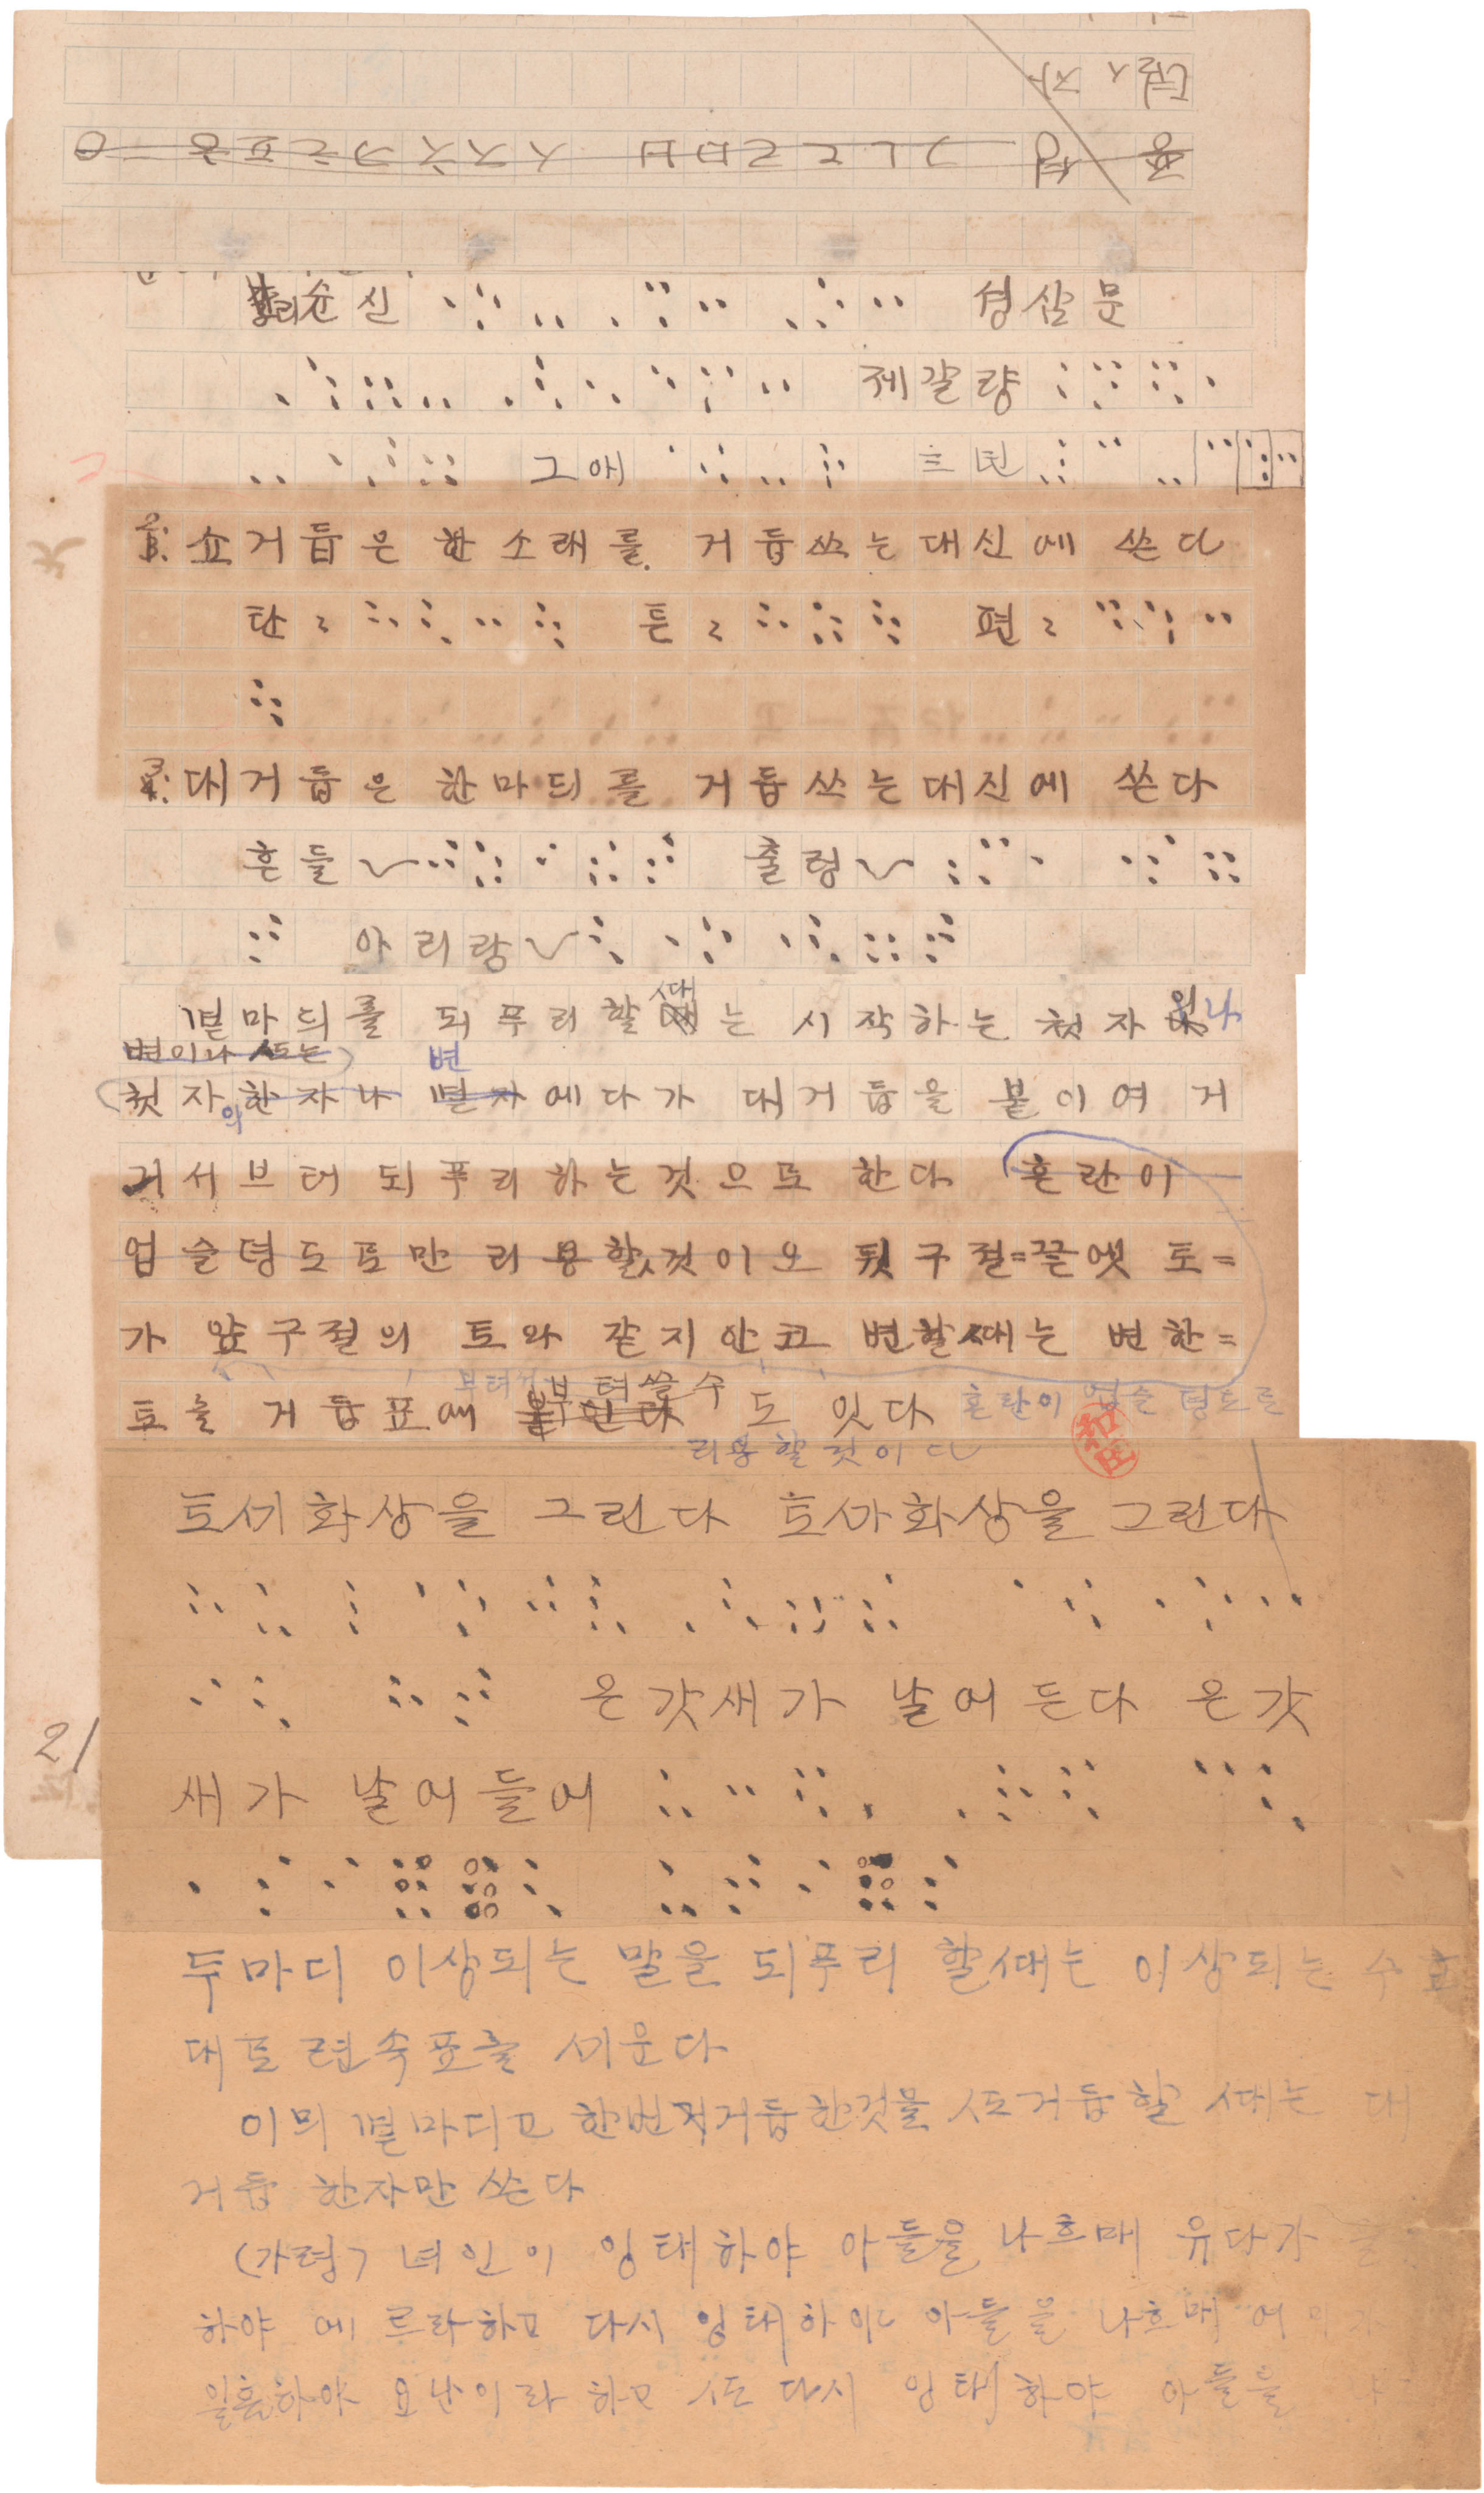 리순신 성삼문
제갈량
그애 크던
소거듭은 한소래를 거듭쓰는대신에 쓴다
탄〻 튼〻 편〻
대거듭은 한마듸를 거듭쓰는대신에 쓴다
흔들 출렁
아리랑
몇마듸를 되푸리할ᄯᅢ는 시작하는 첫자
변이나 ᄯᅩ는 변
첫자의 한자나 몇자에다가 대거듭을 붙이여 거
거서브터 되푸리하는것으로 한다 혼란이
업슬뎡도로만 리용할것이오 뒷구절=끝엣 토=
가 앞구절의 토와 같지안코 변할ᄯᅢ는 변한=
토를 거듭표에 부텨쓸수도 잇다 혼란이 업슬 뎡도로
리용할것이다
토ᄭᅵ화상을 그린다 토ᄭᅵ화상을 그린다
온갓새가 날어든다 온갓
새가 날어들어
21
두마디 이상되는 말을 되푸리 할ᄯᅢ는 이상되는 수효
대로 련속표를 세운다
이믜 몇마디고 한번 거듭한것을 ᄯᅩ거듭할 ᄯᅢ는 대
거듭 한자만 쓴다
(가령) 녀인이 잉태하야 아들을 나흐매 유다가
하야 에르라하고 다시 잉태하야 아들을 나흐매
일홈하야 오난이라 하고 ᄯᅩ 다시 잉태하야 아들을